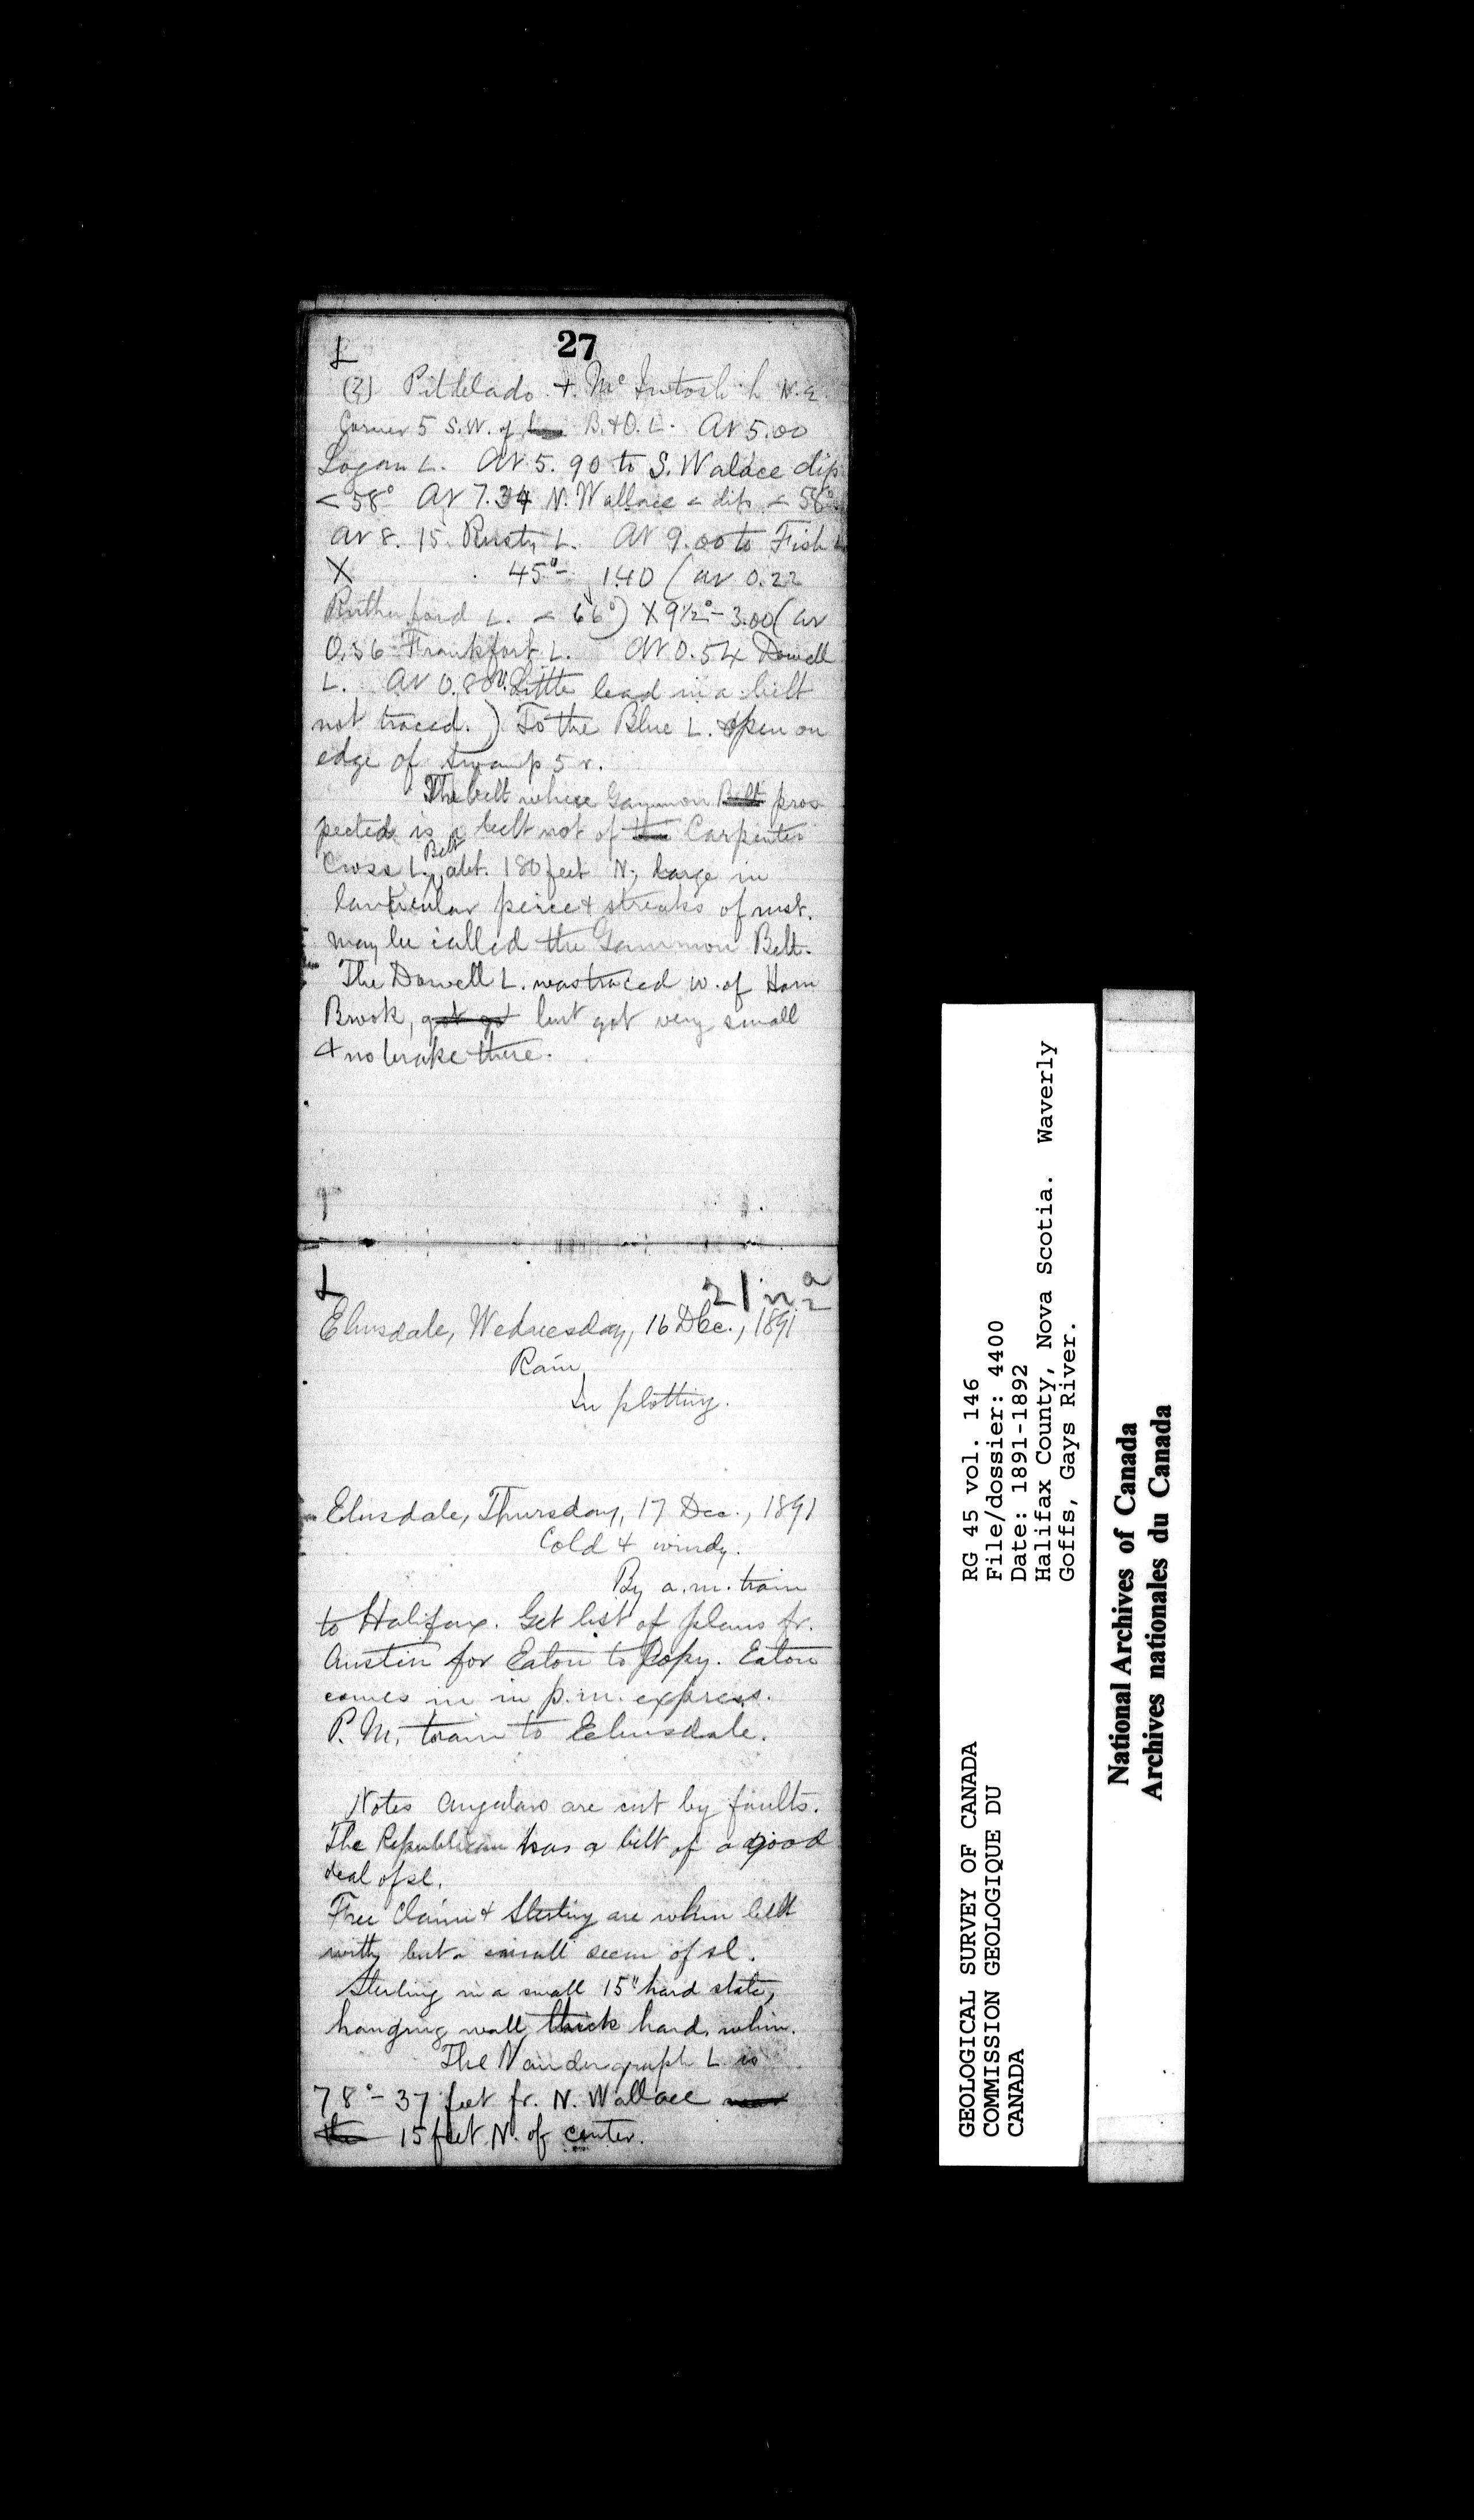 27
L
(3) Pitblado + McIntosh h N.E.
Corner 5 S.W. of B. + O. L. At 5.00
Logan L. At 5.90 to S. Walace dip
< 58° At 7.34 N. Wallace < dip < 58°
at 8.15 Rusty L. At 9.00 to Fish L
X 45° - 1.40 (at 0.22
Rutherford L. < 66°) X 9½° - 3.00 (at
0.36 Frankfort L. At 0.54 Dowell
L. At 0.80 Little lead in a belt
not traced.) To the Blue L. open on
edge of swamp 5 r.
The belt where Gammon Belt pros
pected is a belt not of the Carpenter
Cross L. Belt, abt. 180 feet N, large in
lanticular peice + streaks of rust.
may be called the Gammon Belt.
The Dowell L. was traced W. of Ham
Brook, got got but got very small
+ no brake there.
L
21 in
Elmsdale, Wednesday, 16 Dec., 1891
Rain
In plotting.
Elmsdale, Thursday, 17 Dec., 1891
Cold + windy.
By a.m. train
to Halifax. Get list of plans fr.
Austin for Eaton to Copy. Eaton
comes in in p.m. express.
P.M. train to Elmsdale.
Notes angulars are cut by faults.
The Republican has a belt of a good
deal of sl.
Free Claim + Sterling are whin belt
with but a small seam of sl.
Sterling in a small 15" hard slate,
hanging wall thick hard whin.
The Vandergraph L is
78° - 37 feet fr. N. Wallace near
the 15 feet N. of center.
GEOLOGICAL SURVEY OF CANADA
COMMISSION GEOLOGIQUE DU
CANADA
RG 45 vol. 146
File/dossier: 4400
Date: 1891-1892
Halifax County, Nova Scotia. Waverly
Goffs, Gays River.
National Archives of Canada
Archives nationales du Canada